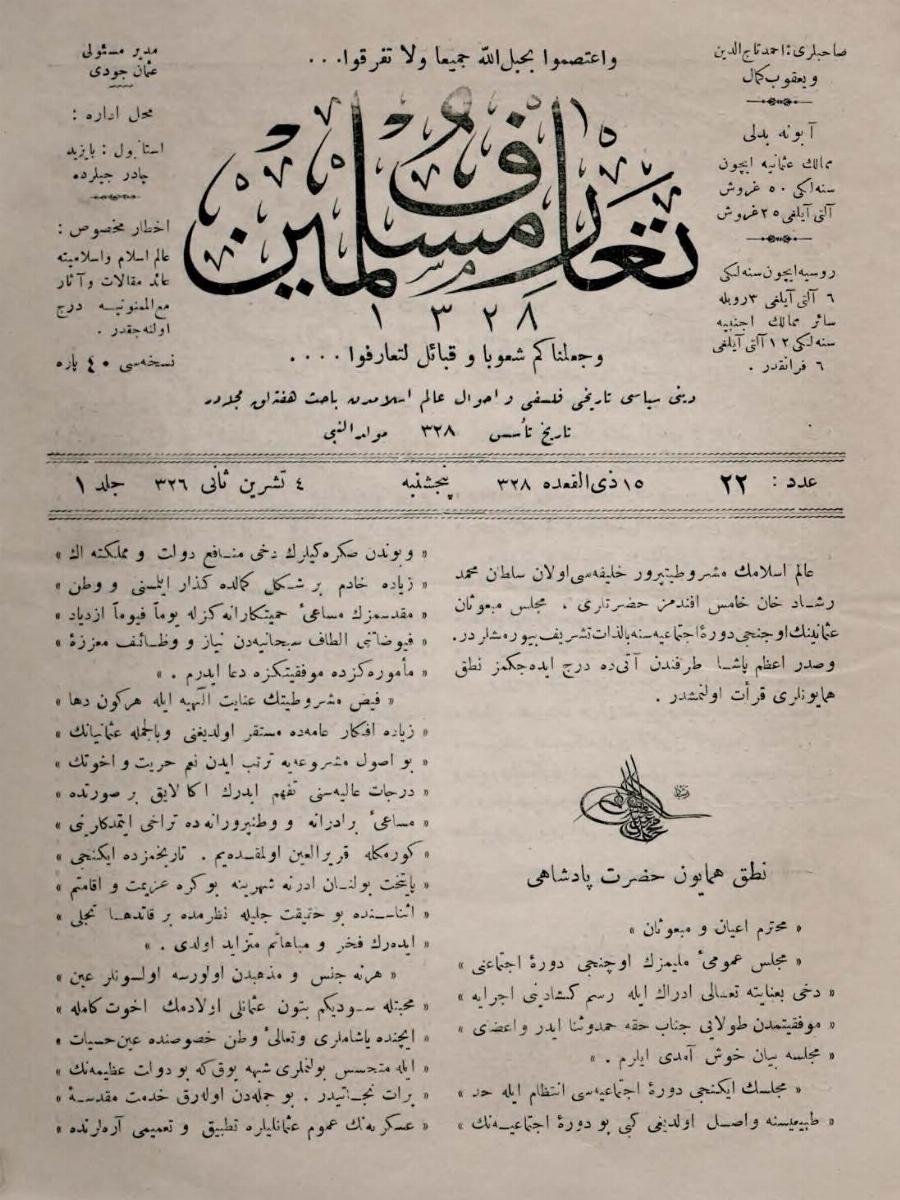 صاحبلری: احمد تاج الدین
و یعقوب کمال
آبونه بدلی
ممالک عثمانیه ایچون
سنه لکی ٥٠ غروش
آلتی آیلغی ٢٥ غروش
روسیه ایچون سنه لکی
٦ آلتی آیلغی ٣ روبله
سائر ممالک اجنبیه
سنه لکی ١٢ آلتی آیلغی
٦ فرانقدر .
واعتصموا بحبل الله جمیعا ولا تفرقوا...
تعارف مسلمین
١٣٢٨
وجعلناکم شعوبا و قبائل لتعارفوا ....
دینی سیاسی تاریخی فلسفی و احوال عالم اسلامدن باحث هفته لق مجله در
تاریخ تأسس ٣٢٨ مولد النبی
مدیر مسئولی
عثمان جودی
محل اداره :
استانبول : بایزید
چادرجیلرده
اخطار مخصوص :
عالم اسلام واسلامیته
عائد مقالات وآثار
مع الممنونیه درج
اولنه جقدر .
نسخه سی ٤٠ پاره
عدد : ٢٢ ١٥ ذی القعده ٣٢٨ پنجشنبه ٤ تشرین ثانی ٣٢٦ جلد ١
عالم اسلامك مشروطیتپرور خلیفه سی اولان سلطان محمد
رشاد خان خامس افندمز حضرتلری ، مجلس مبعوثان
عثمانینك اوچنجی دورۀ اجتماعیه سنه بالذات تشریف بیورمشلردر.
وصدر اعظم پاشا طرفندن آتی ده درج ایده جکمز نطق
همایونلری قرأت اولنمشدر .
نطق همایون حضرت پادشاهی
« محترم اعیان و مبعوثان »
« مجلس عمومیٔ ملیمزك اوچنجی دورۀ اجتماعنی »
« دخی بعنایته تعالی ادراك ایله رسم کشادینی اجرایه »
« موفقیتمدن طولایی جناب حقه حمدوثنا ایدر واعضای »
« مجلسه بیان خوش آمدی ایلرم . »
« مجلسك ایکنجی دورۀ اجتماعیه سی انتظام ایله حد »
« طبیعیسنه واصل اولدیغی کبی بو دورۀ اجتماعیه نك »
« وبوندن صکره کیلرك دخی منافع دولت و مملکته اك »
« زیاده خادم بر شکل کمالده کذار ایلسنی و وطن »
« مقدسمزك مساعیٔ حمیتکارانه کزله یوماً فیوماً ازدیاد »
« فیوضاتنی الطاف سبحانیه دن نیاز و وظائف معززۀ »
« مأموره کزده موفقیتکزه دعا ایدرم . »
« فیض مشروطیتك عنایت الٰهیه ایله هرکون دها »
« زیاده افکار عامه ده مستقر اولدیغنی وبالجمله عثمانیانك »
« بو اصول مشروعه یه ترتب ایدن نعم حریت و اخوتك »
« درجات عالیه سنی تفهم ایدرك اکا لایق بر صورتده »
« مساعیٔ برادرانه و وطنپرورانه ده تراخی ایتمدکارینی »
« کورمکله قریرالعین اولمقده یم . تاریخمزده ایکنجی »
« پایتخت بولنان ادرنه شهرینه بو کره عزیمت و اقامتم »
« اثناسنده بو حقیقت جلیله نظرمده بر قاتدها تجلی »
« ایده رك فخر و مباهاتم متزاید اولدی . »
« هرنه جنس و مذهبدن اولورسه اولسونلر عین »
« محبتله سودیکم بتون عثمانلی اولادمك اخوت کامله »
« ایچنده یاشاملری وتعالیٔ وطن خصوصنده عین حسیات »
« ایله متحسس بولنملری شبهه یوق که بو دولت عظیمه نك »
« برات نجاتیدر . بو جمله دن اوله رق خدمت مقدسۀ »
« عسکریه نك عموم عثمانلیلره تطبیق و تعمیمی آره لرنده »